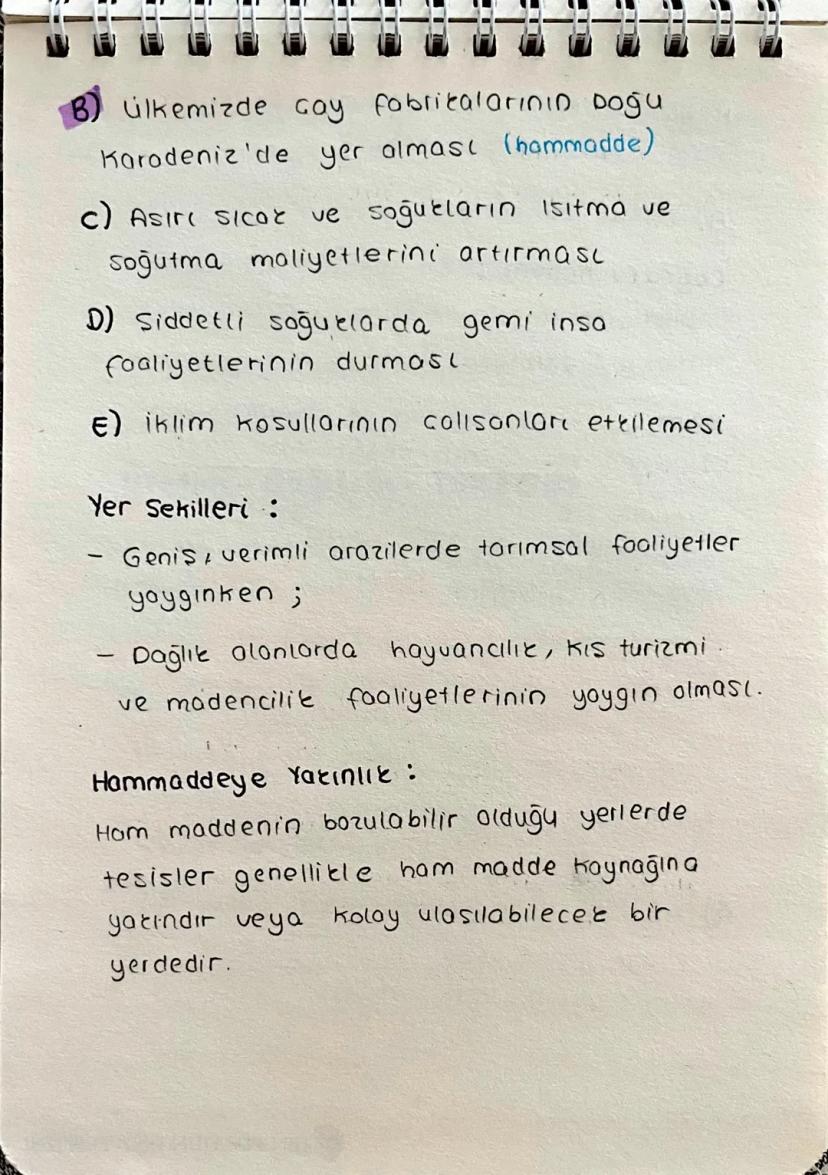 B) Ülkemizde çay fabrikalarının Doğu
Karadeniz'de yer alması (hammadde)
C) Asırı sıcak ve soğukların ısıtma ve
soğutma maliyetlerini artırması
D) Siddetli soğuklarda gemi insa
faaliyetlerinin durması
E) İklim kosullarının calısanları etkilemesi
Yer Sekilleri :
- Geniş, verimli arazilerde tarımsal faaliyetler
yaygınken ;
- Dağlık alanlarda hayvancılık, kıs turizmi
ve madencilik faaliyetlerinin yaygın olması.
Hammaddeye Yakınlık :
Ham maddenin bozulabilir olduğu yerlerde
tesisler genellikle ham madde kaynağına
yakındır veya kolay ulasılabilecek bir
yerdedir.